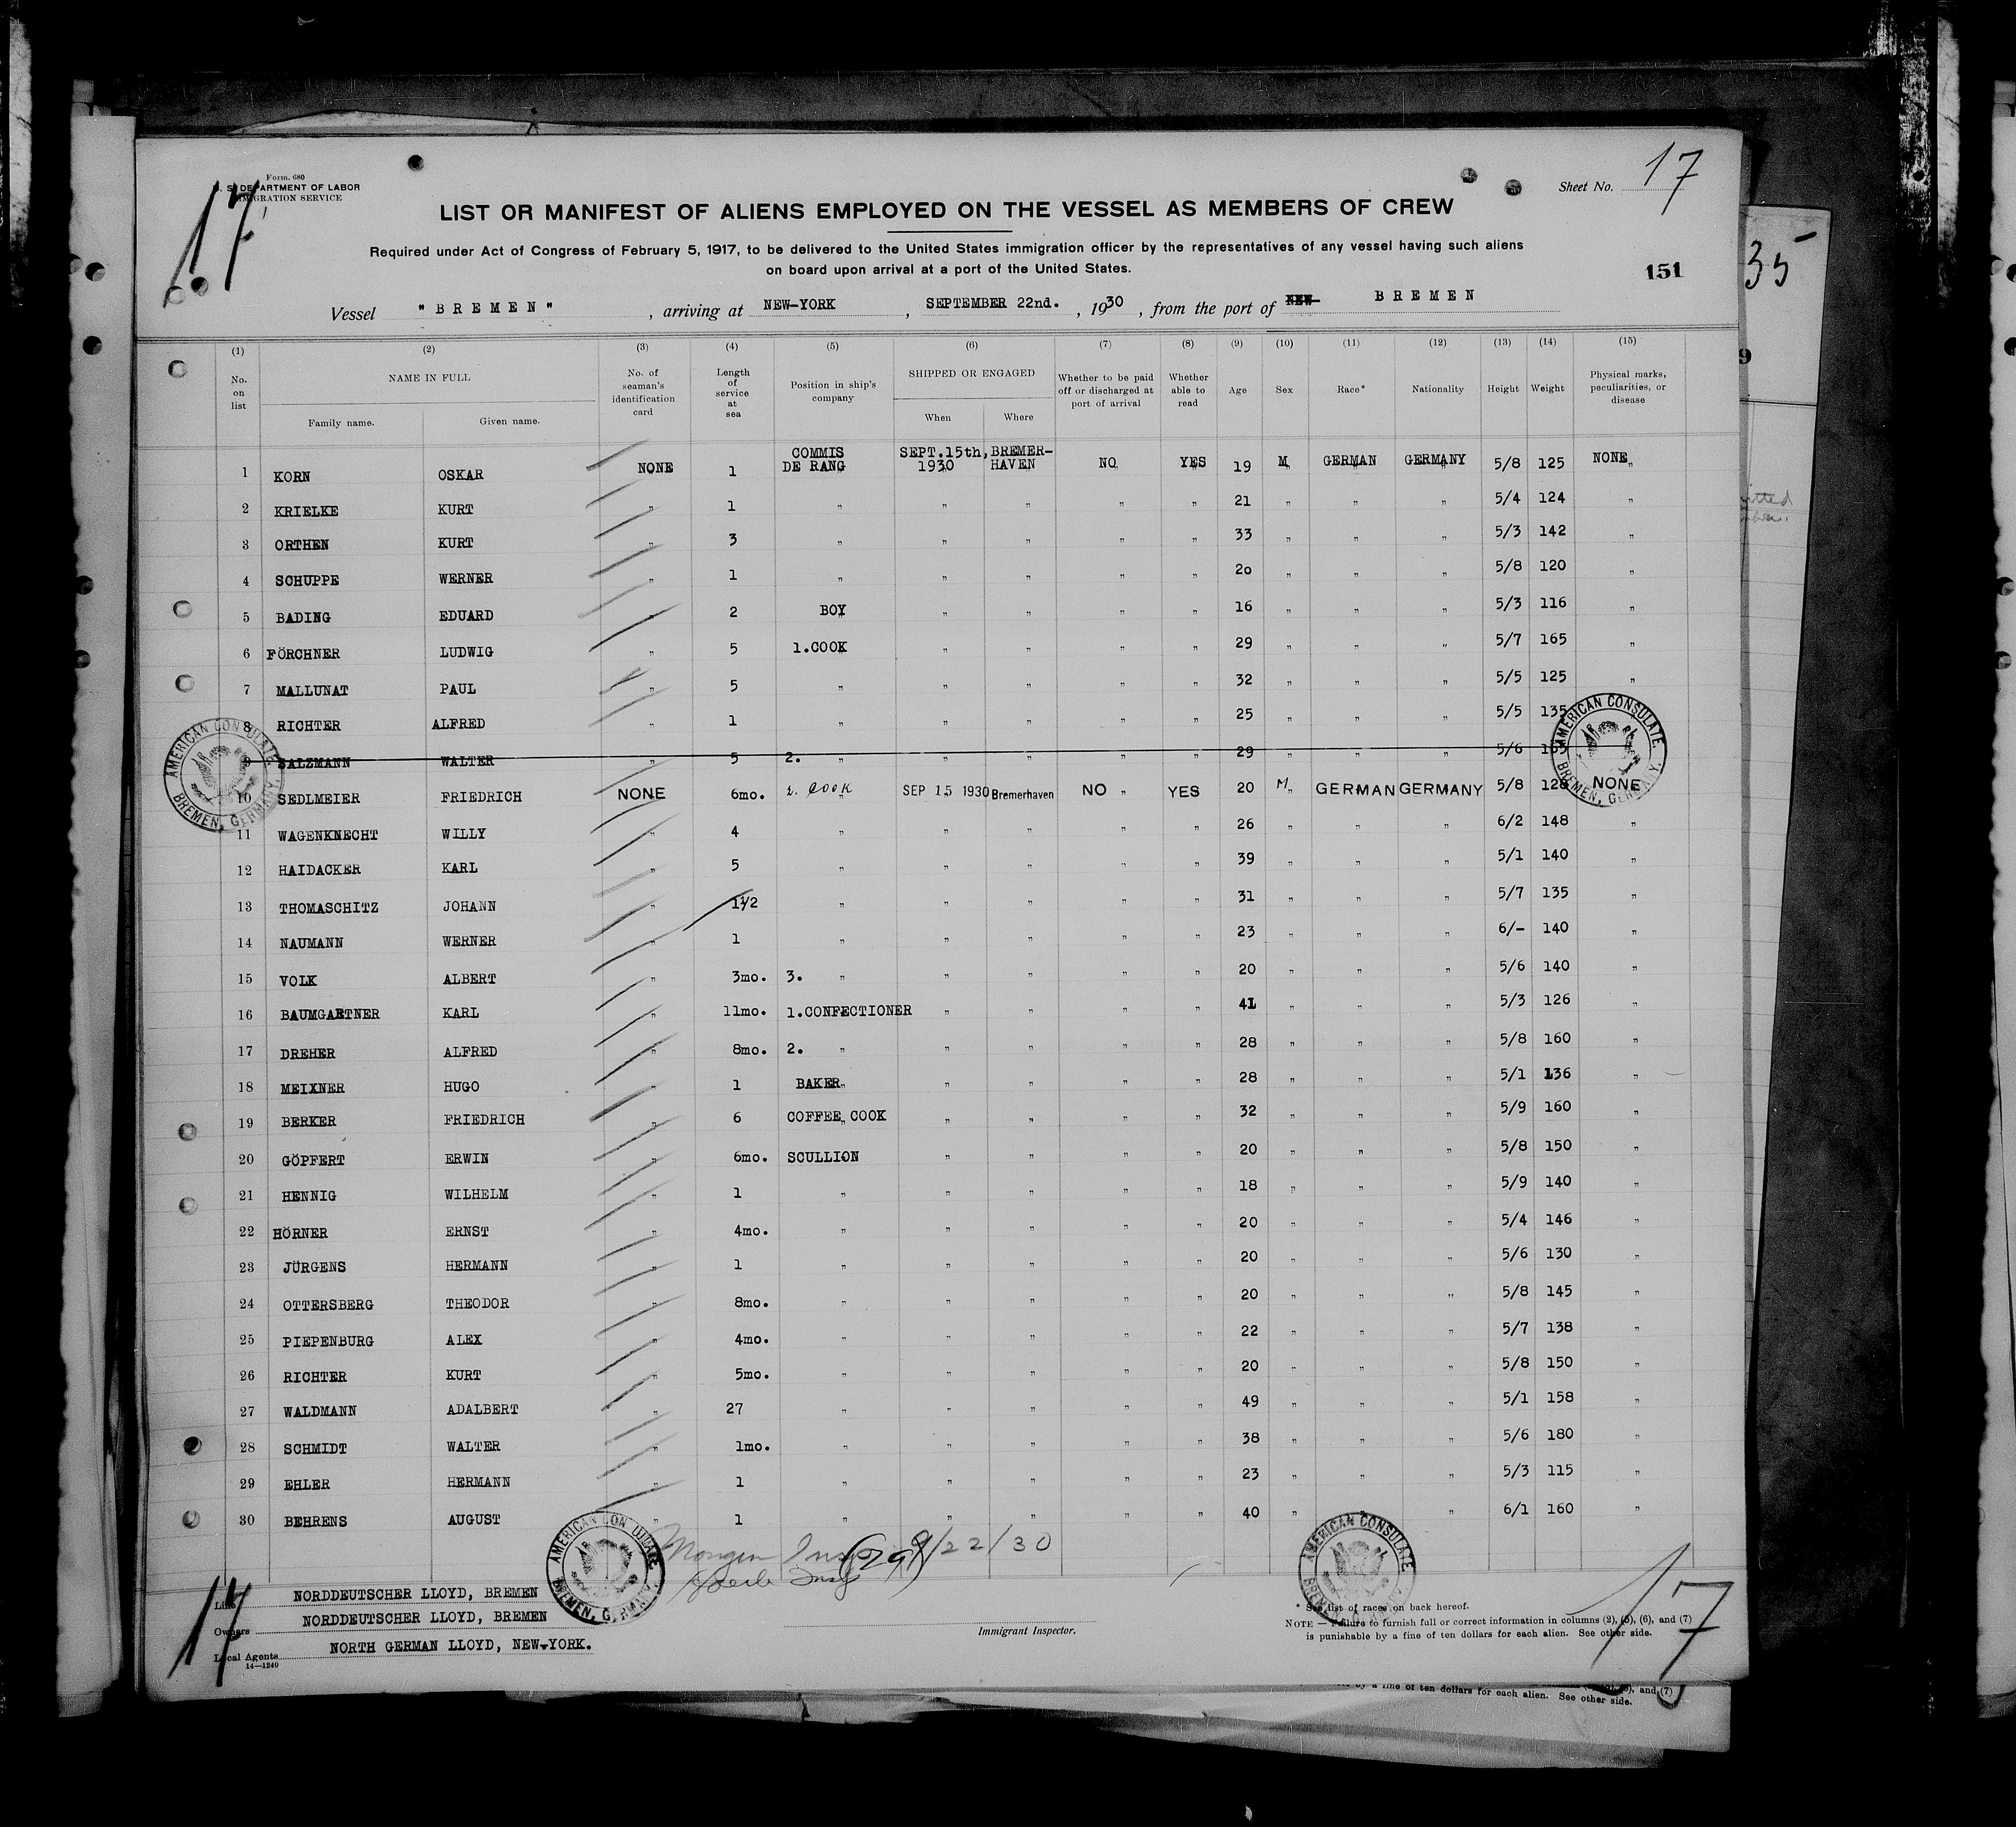 Form. 680
U. S. DEPARTMENT OF LABOR
IMMIGRATION SERVICE
17
Sheet No. 17
LIST OR MANIFEST OF ALIENS EMPLOYED ON THE VESSEL AS MEMBERS OF CREW
Required under Act of Congress of February 5, 1917, to be delivered to the United States immigration officer by the representatives of any vessel having such aliens
on board upon arrival at a port of the United States.
151
35
Vessel "BREMEN", arriving at NEW-YORK, SEPTEMBER 22nd., 1930, from the port of NEW- BREMEN
(1) (2) (3) (4) (5) (6) (7) (8) (9) (10) (11) (12) (13) (14) (15)
No. on list NAME IN FULL Family name. Given name. No. of seaman's identification card Length of service at sea Position in ship's company SHIPPED OR ENGAGED When Where Whether to be paid off or discharged at port of arrival Whether able to read Age Sex Race* Nationality Height Weight Physical marks, peculiarities, or disease
1 KORN OSKAR NONE 1 COMMIS DE RANG SEPT.15th, 1930 BREMER-HAVEN NO YES 19 M GERMAN GERMANY 5/8 125 NONE
2 KRIELKE KURT " 1 " " " " " 21 " " " 5/4 124 "
3 ORTHEN KURT " 3 " " " " " 33 " " " 5/3 142 "
4 SCHUPPE WERNER " 1 " " " " " 20 " " " 5/8 120 "
5 BADING EDUARD " 2 BOY " " " " 16 " " " 5/3 116 "
6 FÖRCHNER LUDWIG " 5 1.COOK " " " " 29 " " " 5/7 165 "
7 MALLUNAT PAUL " 5 " " " " " 32 " " " 5/5 125 "
8 RICHTER ALFRED " 1 " " " " " 25 " " " 5/5 135 "
9 SALZMANN WALTER " 5 2. " " " " " 29 " " " 5/6
10 SEDLMEIER FRIEDRICH NONE 6mo. 2. COOK SEP 15 1930 Bremerhaven NO " YES 20 M GERMAN GERMANY 5/8 128 NONE
11 WAGENKNECHT WILLY " 4 " " " " " 26 " " " 6/2 148 "
12 HAIDACKER KARL " 5 " " " " " 39 " " " 5/1 140 "
13 THOMASCHITZ JOHANN " 1½ " " " " " 31 " " " 5/7 135 "
14 NAUMANN WERNER " 1 " " " " " 23 " " " 6/- 140 "
15 VOLK ALBERT " 3mo. 3. " " " " " 20 " " " 5/6 140 "
16 BAUMGAETNER KARL " 11mo. 1.CONFECTIONER " " " " 41 " " " 5/3 126 "
17 DREHER ALFRED " 8mo. 2. " " " " " 28 " " " 5/8 160 "
18 MEIXNER HUGO 1 BAKER " " " " 28 " " " 5/1 136 "
19 BERKER FRIEDRICH " 6 COFFEE COOK " " " " 32 " " " 5/9 160 "
20 GÖPFERT ERWIN " 6mo. SCULLION " " " " 20 " " " 5/8 150 "
21 HENNIG WILHELM " 1 " " " " " 18 " " " 5/9 140 "
22 HÖRNER ERNST " 4mo. " " " " " 20 " " " 5/4 146 "
23 JÜRGENS HERMANN " 1 " " " " " 20 " " " 5/6 130 "
24 OTTERSBERG THEODOR " 8mo. " " " " " 20 " " " 5/8 145 "
25 PIEPENBURG ALEX " 4mo. " " " " " 22 " " " 5/7 138 "
26 RICHTER KURT " 5mo. " " " " " 20 " " " 5/8 150 "
27 WALDMANN ADALBERT " 27 " " " " " 49 " " " 5/1 158 "
28 SCHMIDT WALTER " 1mo. " " " " " 38 " " " 5/6 180 "
29 EHLER HERMANN " 1 " " " " " 23 " " " 5/3 115 "
30 BEHRENS AUGUST " 1 " " " " " 40 " " " 6/1 160 "
AMERICAN CONSULATE. BREMEN, GERMANY.
AMERICAN CONSULATE. BREMEN, GERMANY.
AMERICAN CONSULATE. BREMEN, GERMANY.
AMERICAN CONSULATE. BREMEN, GERMANY.
9/22/30
17
Line NORDDEUTSCHER LLOYD, BREMEN
Owners NORDDEUTSCHER LLOYD, BREMEN
Local Agents NORTH GERMAN LLOYD, NEW-YORK.
14—1240
Immigrant Inspector.
* See list of races on back hereof.
NOTE — Failure to furnish full or correct information in columns (2), (5), (6), and (7)
is punishable by a fine of ten dollars for each alien. See other side.
17
by a fine of ten dollars for each alien. See other side.
and (7)